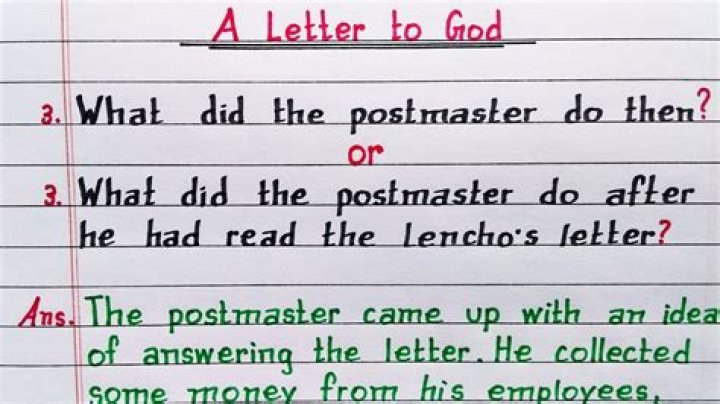 A Letter to God
3. What did the postmaster do then?
or
3. What did the postmaster do after
he had read the Lencho's letter?
Ans. The postmaster came up with an idea
of answering the letter. He collected
some money from his employees,